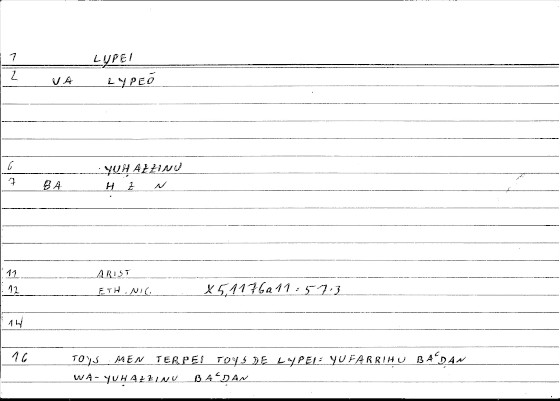 1 LYPEI
2 VA LYPEŌ
6 YUḤAZZINU
7 BA Ḥ Z N
11 ARIST
12 ETH.NIC. X5,1176a11 : 57.3
14
16 TOYS MEN TERPEI TOYS DE LYPEI: YUFARRIḤU BAʿḌAN
WA-YUḤAZZINU BAʿḌAN